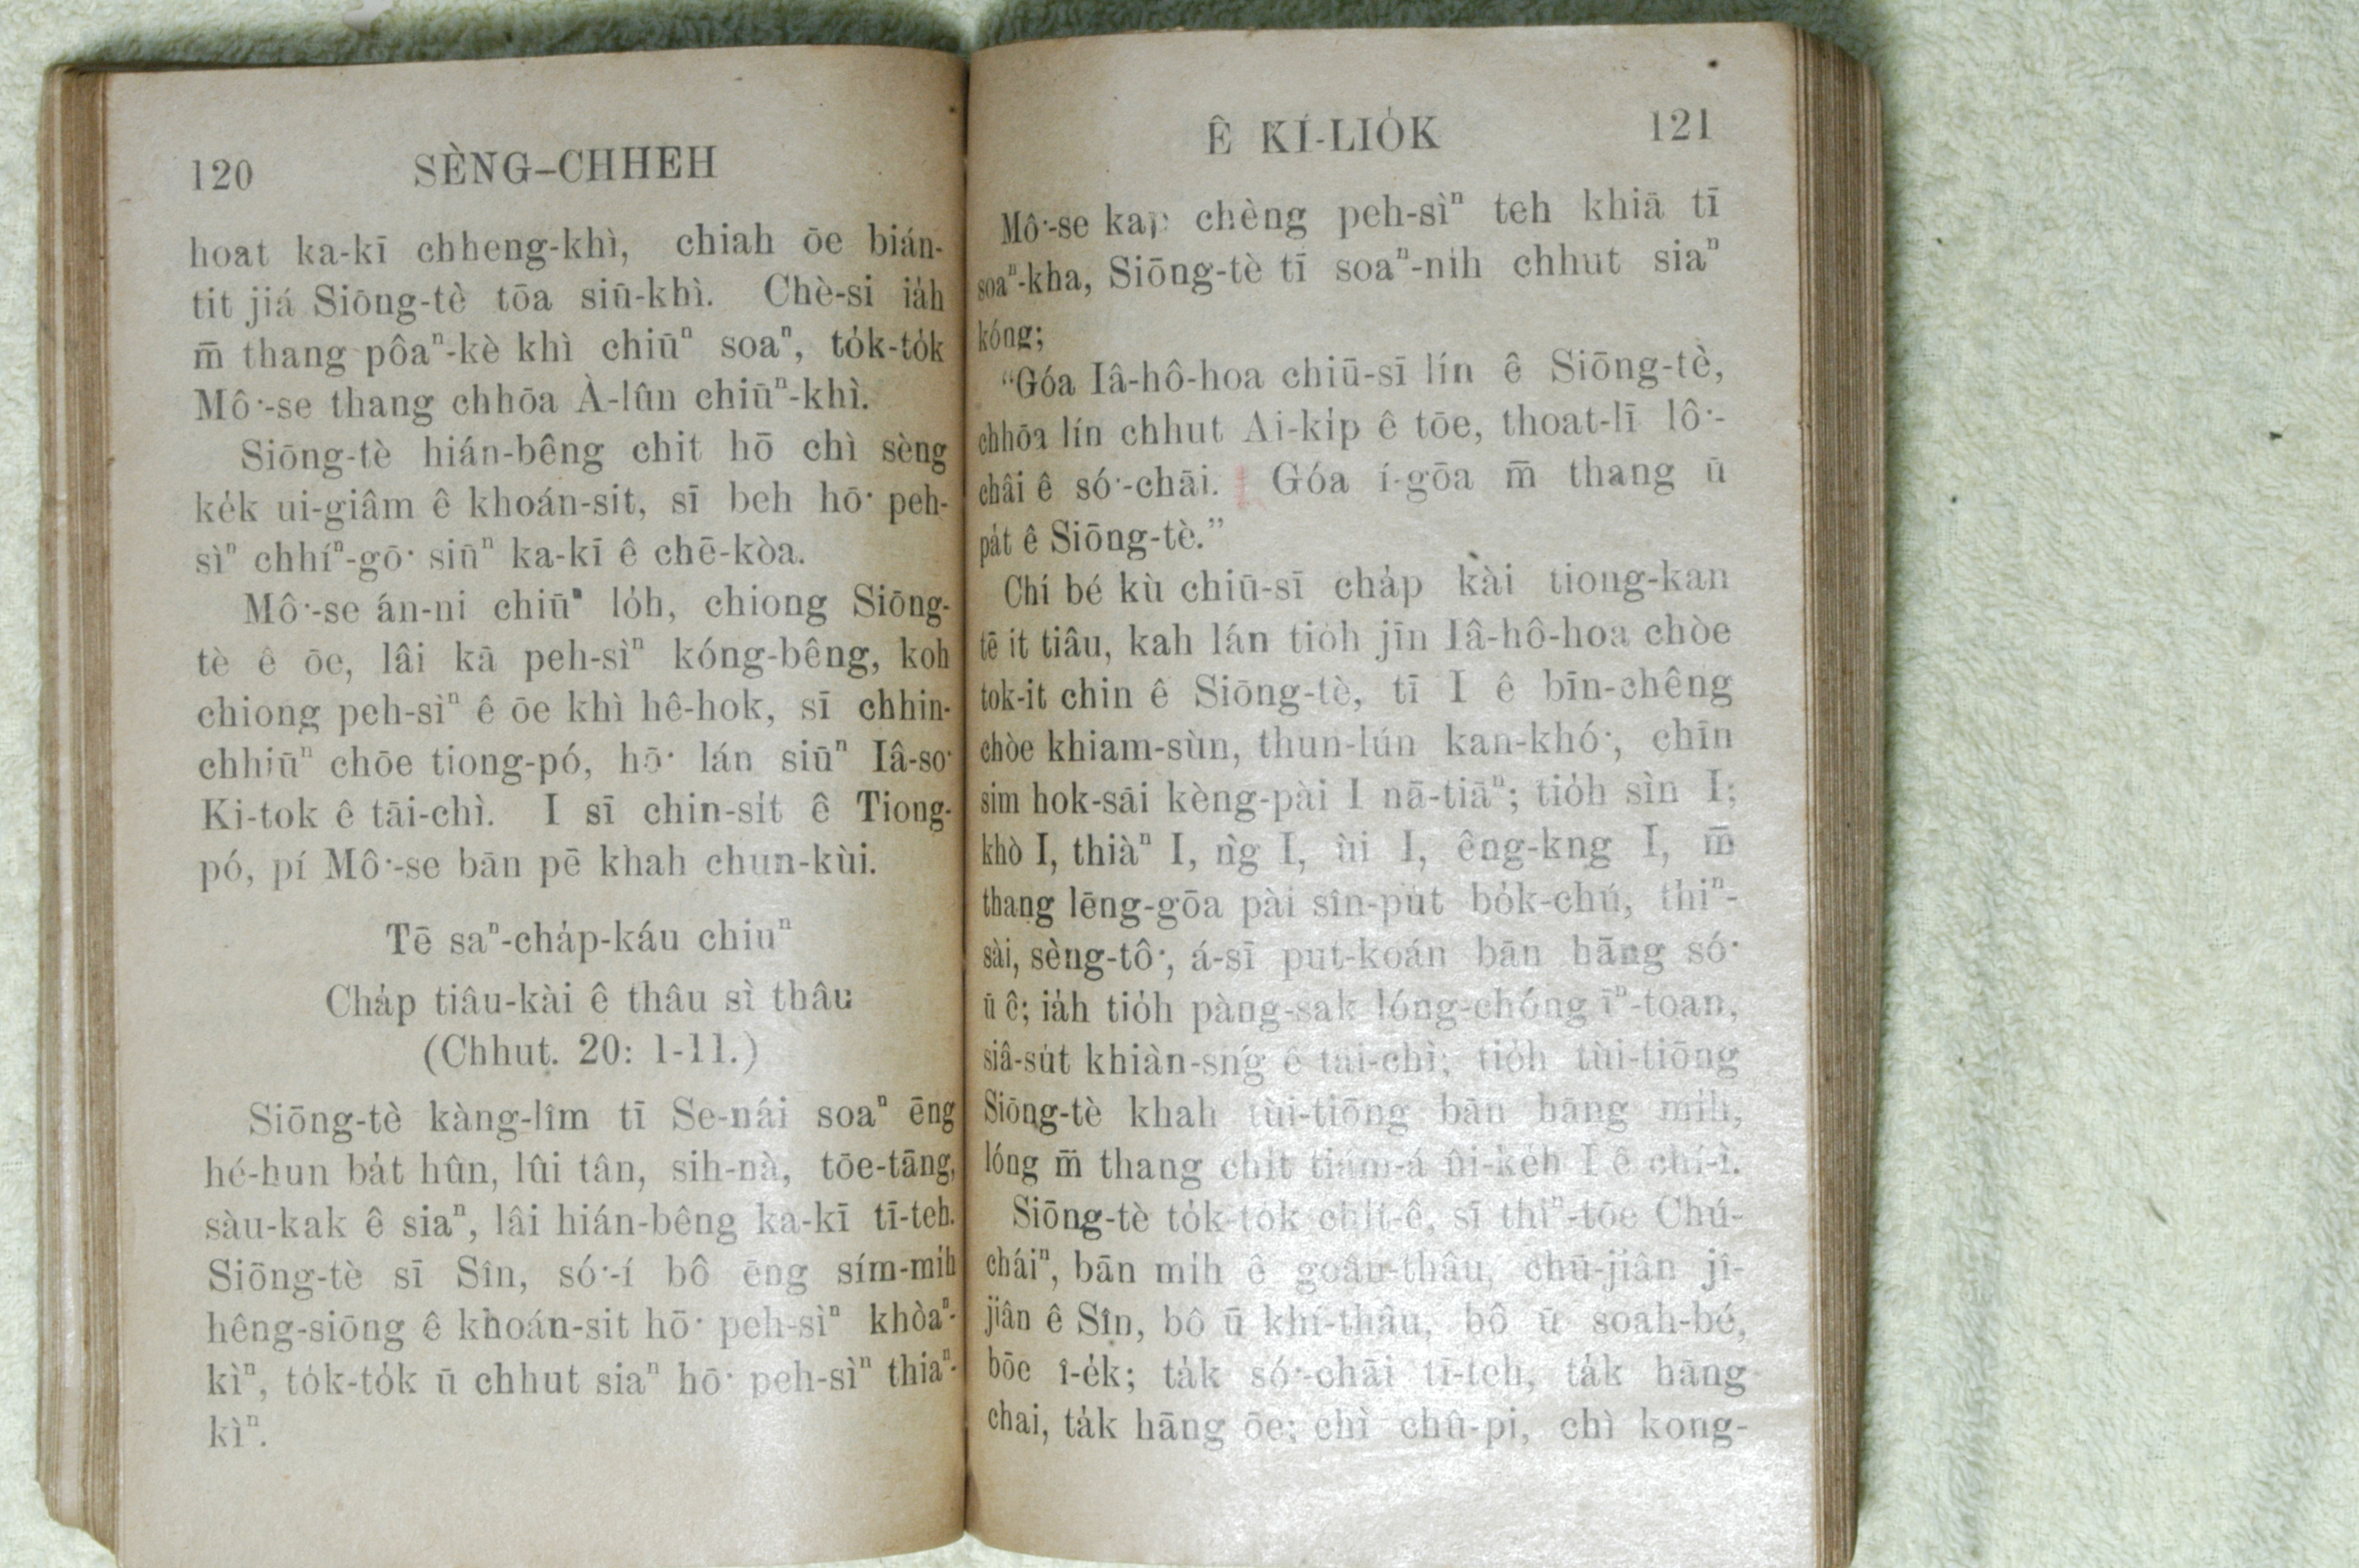 120 SÈNG-CHHEH
hoat ka-kī chheng-khì, chiah ōe bián-
tit jiá Siōng-tè tōa siū-khì. Chè-si ia̍h
m̄ thang pôaⁿ-kè khì chiūⁿ soaⁿ, to̍k-to̍k
Mô͘-se thang chhōa À-lûn chiūⁿ-khì.
Siōng-tè hián-bêng chit hō chì sèng
ke̍k ui-giâm ê khoán-sit, sī beh hō͘ peh-
sìⁿ chhíⁿ-gō͘ siūⁿ ka-kī ê chē-kòa.
Mô͘-se án-ni chiūⁿ lo̍h, chiong Siōng-
tè ê ōe, lâi kā peh-sìⁿ kóng-bêng, koh
chiong peh-sìⁿ ê ōe khì hê-hok, sī chhin-
chhiūⁿ chōe tiong-pó, hō͘ lán siūⁿ Iâ-so͘
Ki-tok ê tāi-chì. I sī chin-si̍t ê Tiong-
pó, pí Mô͘-se bān pē khah chun-kùi.
Tē saⁿ-cha̍p-káu chiuⁿ
Cha̍p tiâu-kài ê thâu sì thâu
(Chhut. 20: 1-11.)
Siōng-tè kàng-lîm tī Se-nái soaⁿ ēng
hé-hun ba̍t hûn, lûi tân, sih-nà, tōe-tāng,
sàu-kak ê siaⁿ, lâi hián-bêng ka-kī tī-teh.
Siōng-tè sī Sîn, só͘-í bô ēng sím-mi̍h
hêng-siōng ê khoán-sit hō͘ peh-sìⁿ khòaⁿ-
kìⁿ, to̍k-to̍k ū chhut siaⁿ hō͘ peh-sìⁿ thiaⁿ-
kìⁿ.
Ê KÍ-LIO̍K 121
Mô͘-se kap chèng peh-sìⁿ teh khiā tī
soaⁿ-kha, Siōng-tè tī soaⁿ-nih chhut siaⁿ
kóng;
“Góa Iâ-hô-hoa chiū-sī lín ê Siōng-tè,
chhōa lín chhut Ai-ki̍p ê tōe, thoat-lī lô͘-
châi ê só͘-chāi. Góa í-gōa m̄ thang ū
pa̍t ê Siōng-tè.”
Chí bé kù chiū-sī cha̍p kài tiong-kan
tē it tiâu, kah lán tio̍h jīn Iâ-hô-hoa chòe
tok-it chin ê Siōng-tè, tī I ê bīn-chêng
chòe khiam-sùn, thun-lún kan-khó͘, chīn
sim hok-sāi kèng-pài I nā-tiāⁿ; tio̍h sìn I;
khò I, thiàⁿ I, ǹg I, ùi I, êng-kng I, m̄
thang lēng-gōa pài sîn-pu̍t bo̍k-chú, thiⁿ-
sài, sèng-tô͘, á-sī put-koán bān hāng só͘
ū ê; ia̍h tio̍h pàng-sak lóng-chóng īⁿ-toan,
siâ-su̍t khiàn-sńg ê tāi-chì; tio̍h tùi-tiōng
Siōng-tè khah tùi-tiōng bān hāng mi̍h,
lóng m̄ thang chi̍t tiám-á ûi-ke̍h I ê chí-ì.
Siōng-tè to̍k-to̍k chi̍t-ê, sī thiⁿ-tōe Chú-
cháiⁿ, bān mi̍h ê goân-thâu, chū-jiân jî-
jiân ê Sîn, bô ū khí-thâu, bô ū soah-bé,
bōe î-e̍k; ta̍k só͘-chāi tī-teh, ta̍k hāng
chai, ta̍k hāng ōe; chì chû-pi, chì kong-